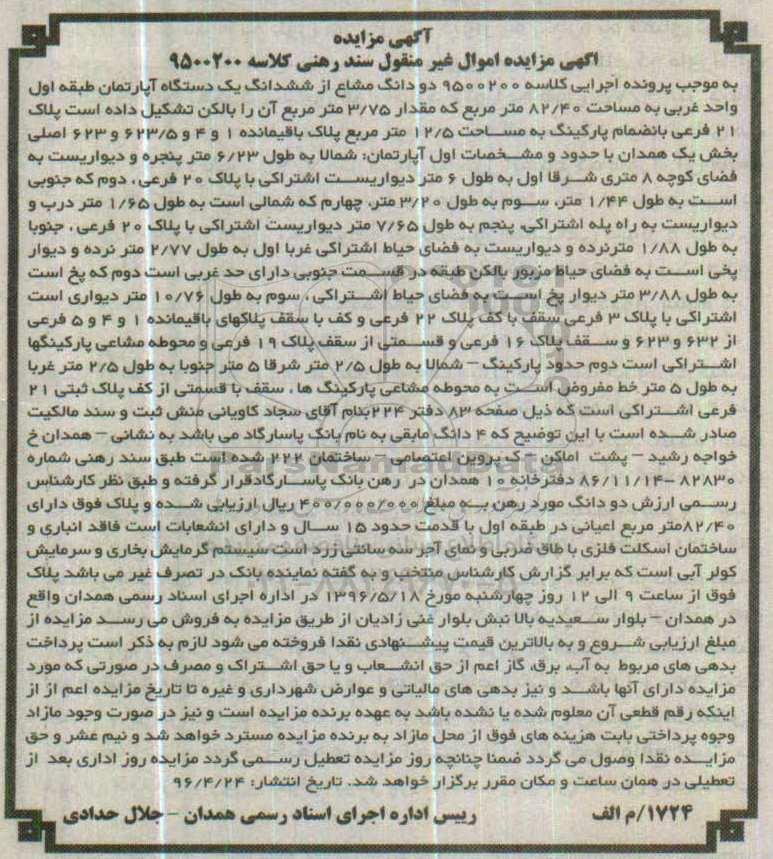 آگهی مزایده
آگهی مزایده اموال غیر منقول سند رهنی کلاسه ۹۵۰۰۲۰۰
به موجب پرونده اجرایی کلاسه ۹۵۰۰۲۰۰ دو دانگ مشاع از ششدانگ یک دستگاه آپارتمان طبقه اول
واحد غربی به مساحت ۸۲/۴۰ متر مربع که مقدار ۳/۷۵ متر مربع آن را بالکن تشکیل داده است پلاک
۲۱ فرعی بانضمام پارکینگ به مساحت ۱۲/۵ متر مربع پلاک باقیمانده ۱ و ۴ و ۶۲۳/۵ و ۶۲۳ اصلی
بخش یک همدان با حدود و مشخصات اول آپارتمان: شمالا به طول ۶/۲۳ متر پنجره و دیواریست به
فضای کوچه ۸ متری شرقا اول به طول ۶ متر دیواریست اشتراکی با پلاک ۲۰ فرعی ، دوم که جنوبی
است به طول ۱/۴۴ متر، سوم به طول ۳/۲۰ متر، چهارم که شمالی است به طول ۱/۶۵ متر درب و
دیواریست به راه پله اشتراکی، پنجم به طول ۷/۶۵ متر دیواریست اشتراکی با پلاک ۲۰ فرعی ، جنوبا
به طول ۱/۸۸ مترنرده و دیواریست به فضای حیاط اشتراکی غربا اول به طول ۲/۷۷ متر نرده و دیوار
پخی است به فضای حیاط مزبور بالکن طبقه در قسمت جنوبی دارای حد غربی است دوم که پخ است
به طول ۳/۸۸ متر دیوار پخ است به فضای حیاط اشتراکی ، سوم به طول ۱۰/۷۶ متر دیواری است
اشتراکی با پلاک ۳ فرعی سقف با کف پلاک ۲۲ فرعی و کف با سقف پلاکهای باقیمانده ۱ و ۴ و ۵ فرعی
از ۶۳۲ و ۶۲۳ و سقف پلاک ۱۶ فرعی و قسمتی از سقف پلاک ۱۹ فرعی و محوطه مشاعی پارکینگها
اشتراکی است دوم حدود پارکینگ – شمالا به طول ۲/۵ متر شرقا ۵ متر جنوبا به طول ۲/۵ متر غربا
به طول ۵ متر خط مفروض است به محوطه مشاعی پارکینگ ها ، سقف با قسمتی از کف پلاک ثبتی ۲۱
فرعی اشتراکی است که ذیل صفحه ۸۳ دفتر ۲۲۴بنام آقای سجاد کاویانی منش ثبت و سند مالکیت
صادر شده است با این توضیح که ۴ دانگ مابقی به نام بانک پاسارگاد می باشد به نشانی – همدان خ
خواجه رشید – پشت اماکن – ک پروین اعتصامی – ساختمان ۲۲۲ شده است طبق سند رهنی شماره
۸۲۸۳۰ –۸۶/۱۱/۱۴ دفترخانه ۱۰ همدان در رهن بانک پاسارگادقرار گرفته و طبق نظر کارشناس
رسمی ارزش دو دانگ مورد رهن به مبلغ ۴۰۰/۰۰۰/۰۰۰ ریال ارزیابی شده و پلاک فوق دارای
۸۲/۴۰متر مربع اعیانی در طبقه اول با قدمت حدود ۱۵ سال و دارای انشعابات است فاقد انباری و
ساختمان اسکلت فلزی با طاق ضربی و نمای آجر سه سانتی زرد است سیستم گرمایش بخاری و سرمایش
کولر آبی است که برابر گزارش کارشناس منتخب و به گفته نماینده بانک در تصرف غیر می باشد پلاک
فوق از ساعت ۹ الی ۱۲ روز چهارشنبه مورخ ۱۳۹۶/۵/۱۸ در اداره اجرای اسناد رسمی همدان واقع
در همدان – بلوار سعیدیه بالا نبش بلوار غنی زادیان از طریق مزایده به فروش می رسد مزایده از
مبلغ ارزیابی شروع و به بالاترین قیمت پیشنهادی نقدا فروخته می شود لازم به ذکر است پرداخت
بدهی های مربوط به آب، برق، گاز اعم از حق انشعاب و یا حق اشتراک و مصرف در صورتی که مورد
مزایده دارای آنها باشد و نیز بدهی های مالیاتی و عوارض شهرداری و غیره تا تاریخ مزایده اعم از از
اینکه رقم قطعی آن معلوم شده یا نشده باشد به عهده برنده مزایده است و نیز در صورت وجود مازاد
وجوه پرداختی بابت هزینه های فوق از محل مازاد به برنده مزایده مسترد خواهد شد و نیم عشر و حق
مزایده نقدا وصول می گردد ضمنا چنانچه روز مزایده تعطیل رسمی گردد مزایده روز اداری بعد از
تعطیلی در همان ساعت و مکان مقرر برگزار خواهد شد. تاریخ انتشار: ۹۶/۴/۲۴
۱۷۲۴/م الف رییس اداره اجرای اسناد رسمی همدان – جلال حدادی